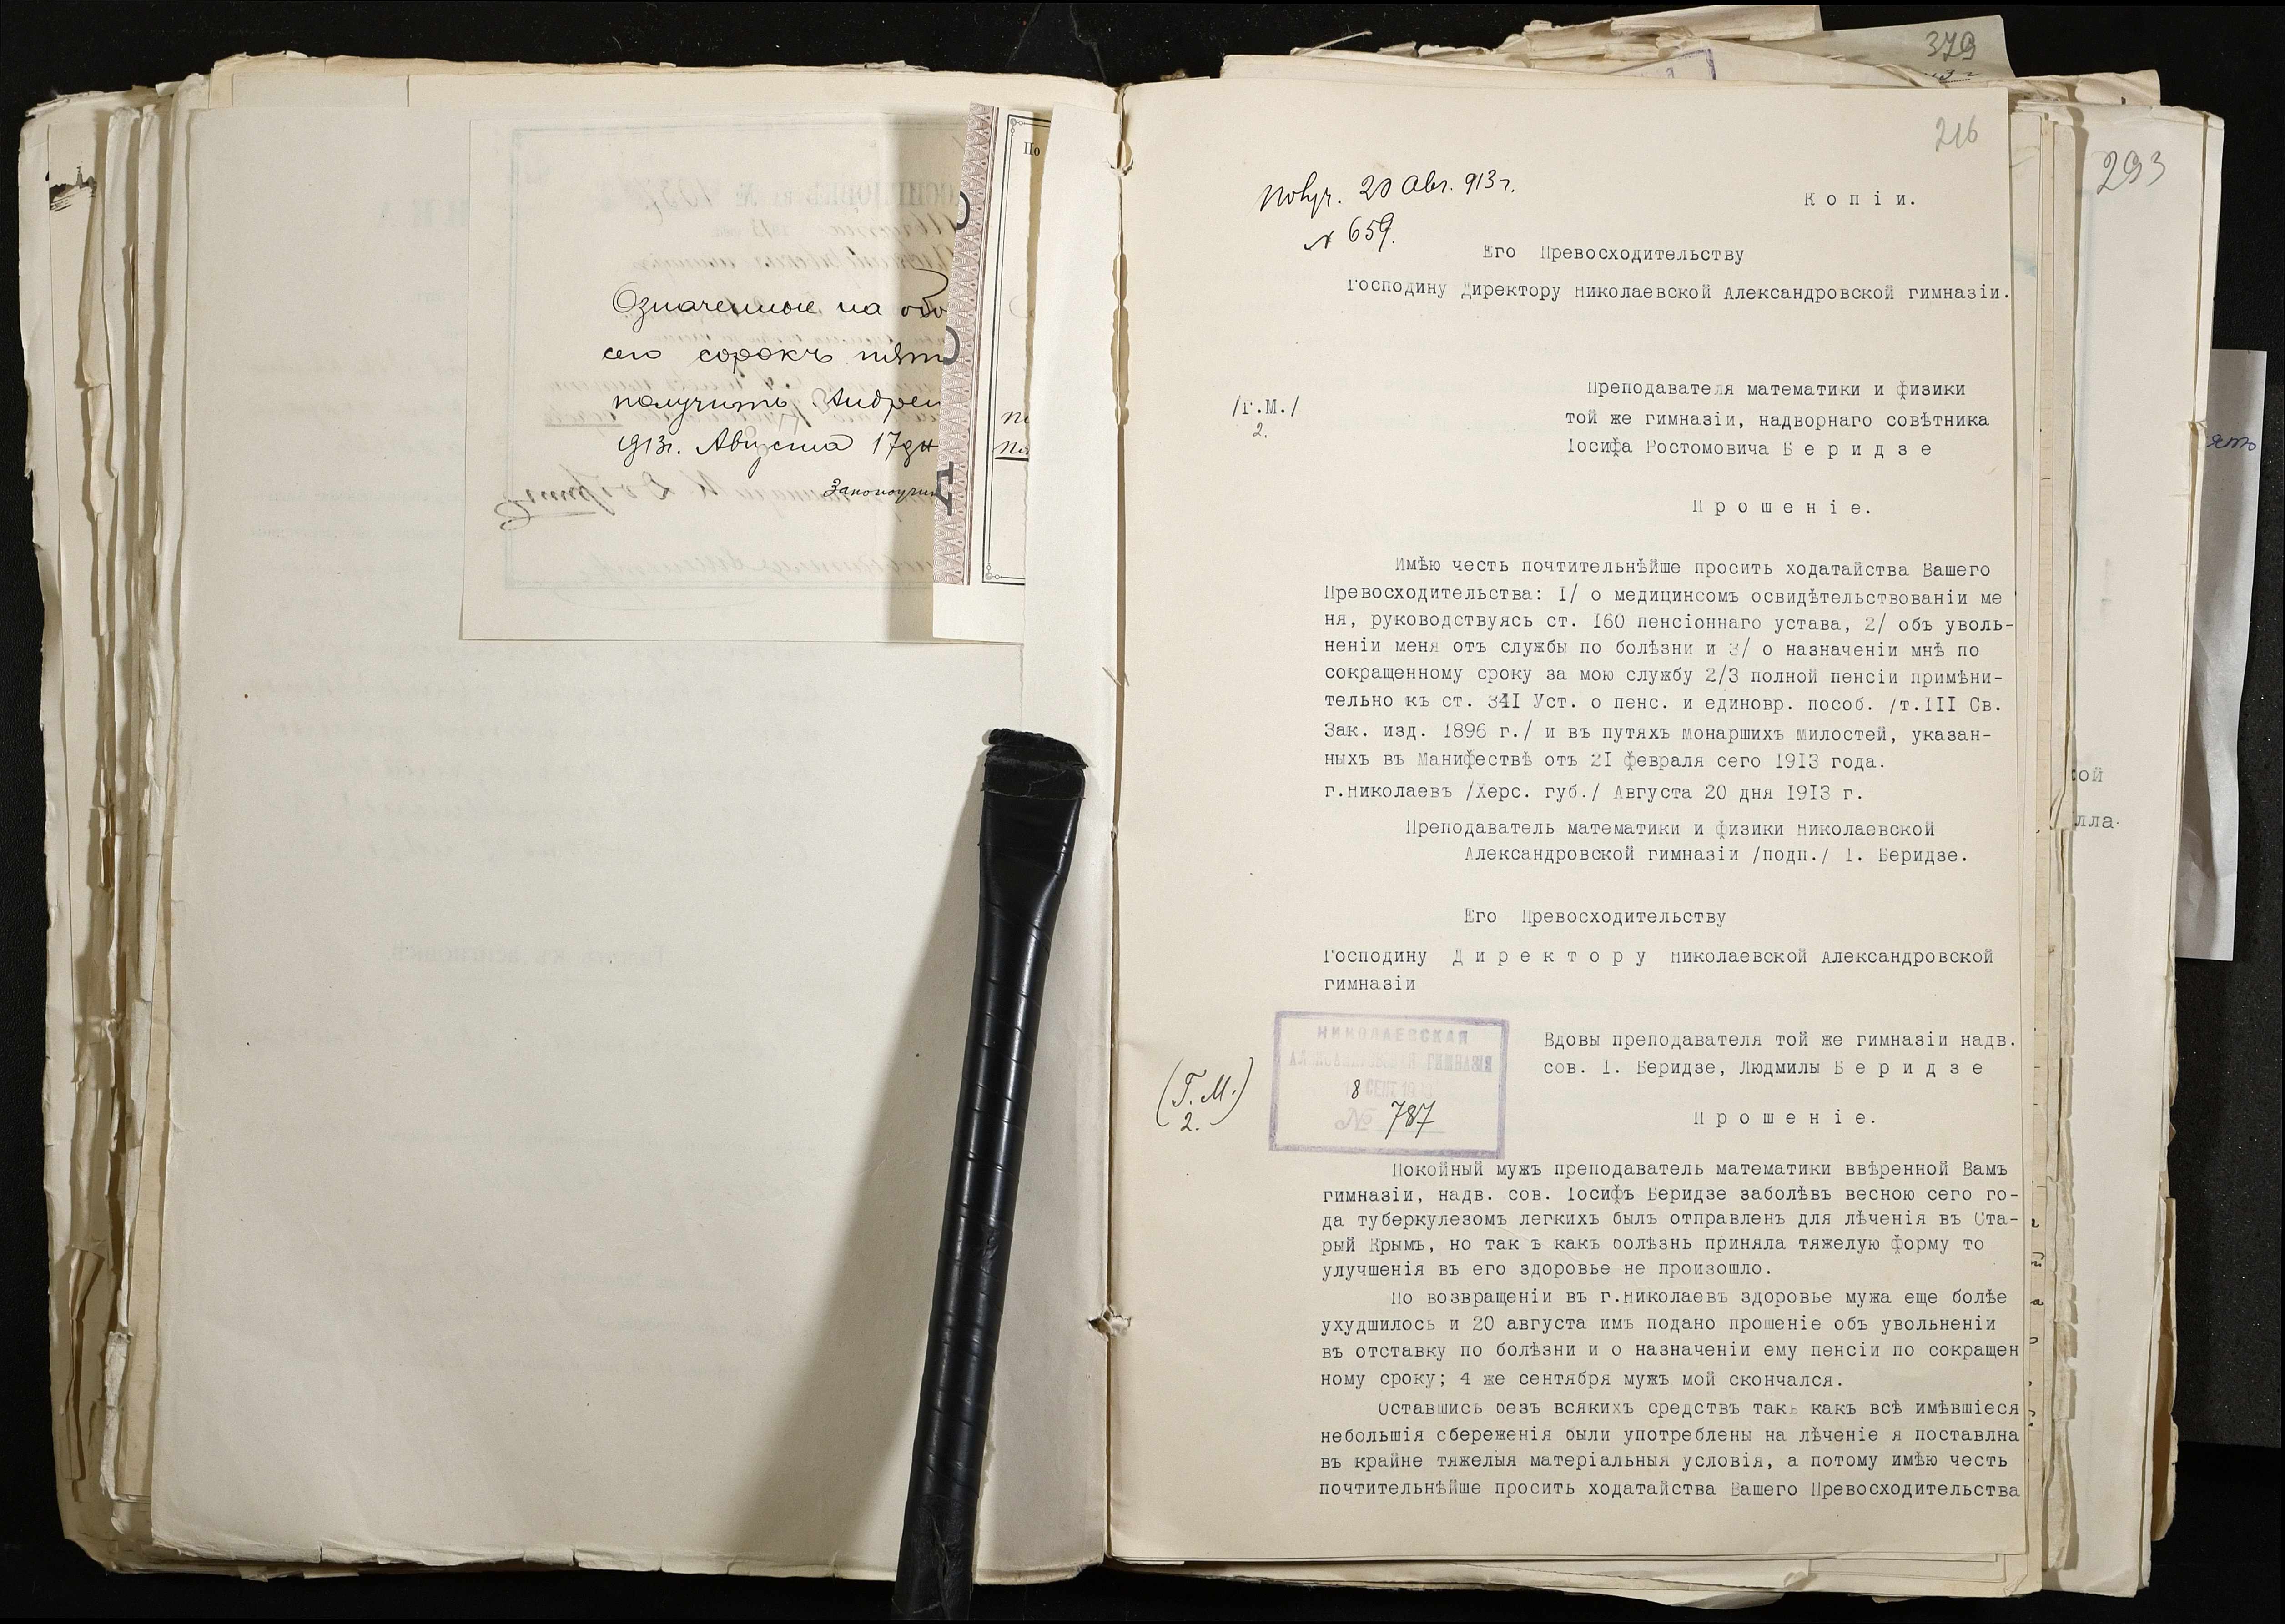 379
293
216
Означенные на обо
сего сорокъ пят
получить Андрей
913г. Августа 17 дн
Законоучи
По
Получ. 20 Авг. 913 г.
№ 659.
Копіи.
Его Превосходительству
Господину Директору Николаевской Александровской гимназіи.
/Г.М./
2.
Преподавателя математики и физики
той же гимназіи, надворнаго совѣтника
Іосифа Ростомовича Беридзе
Прошеніе.
Имѣю честь почтительнѣйше просить ходатайства Вашего
Превосходительства: I/ о медицинсомъ освидѣтельствованіи ме
ня, руководствуясь ст. I60 пенсіоннаго устава, 2/ объ уволь-
неніи меня отъ службы по болѣзни и 3/ о назначеніи мнѣ по
сокращенному сроку за мою службу 2/3 полной пенсіи примѣни-
тельно къ ст. 34I Уст. о пенс. и единовр. пособ. /т.III Св.
Зак. изд. 1896 г./ и въ путяхъ монаршихъ милостей, указан-
ныхъ въ Манифествѣ отъ 2I февраля сего I9I3 года.
г.Николаевъ /Херс. губ./ Августа 20 дня I9I3 г.
Преподаватель математики и физики Николаевской
Александровской гимназіи /подп./ І. Беридзе.
Его Превосходительству
Господину Директору Николаевской Александровской
гимназіи
НИКОЛАЕВСКАЯ
АЛЕКСАНДРОВСКАЯ ГИМНАЗІЯ
8 СЕНТ.
№ 787
(Г.М.)
2.
Вдовы преподавателя той же гимназіи надв.
сов. І. Беридзе, Людмилы Беридзе
Прошеніе.
Покойный мужъ преподаватель математики ввѣренной Вамъ
гимназіи, надв. сов. Іосифъ Беридзе заболѣвъ весною сего го-
да туберкулезомъ легкихъ былъ отправленъ для лѣченія въ Ста-
рый Крымъ, но так ъ какъ болѣзнь приняла тяжелую форму то
улучшенія въ его здоровье не произошло.
По возвращеніи въ г.Николаевъ здоровье мужа еще болѣе
ухудшилось и 20 августа имъ подано прошеніе объ увольненіи
въ отставку по болѣзни и о назначеніи ему пенсіи по сокращен
ному сроку; 4 же сентября мужъ мой скончался.
Оставшись безъ всякихъ средствъ такъ какъ всѣ имѣвшіеся
небольшія сбереженія были употреблены на лѣченіе я поставлна
въ крайне тяжелыя матеріальныя условія, а потому имѣю честь
почтительнѣйше просить ходатайства Вашего Превосходительства
ой
лла